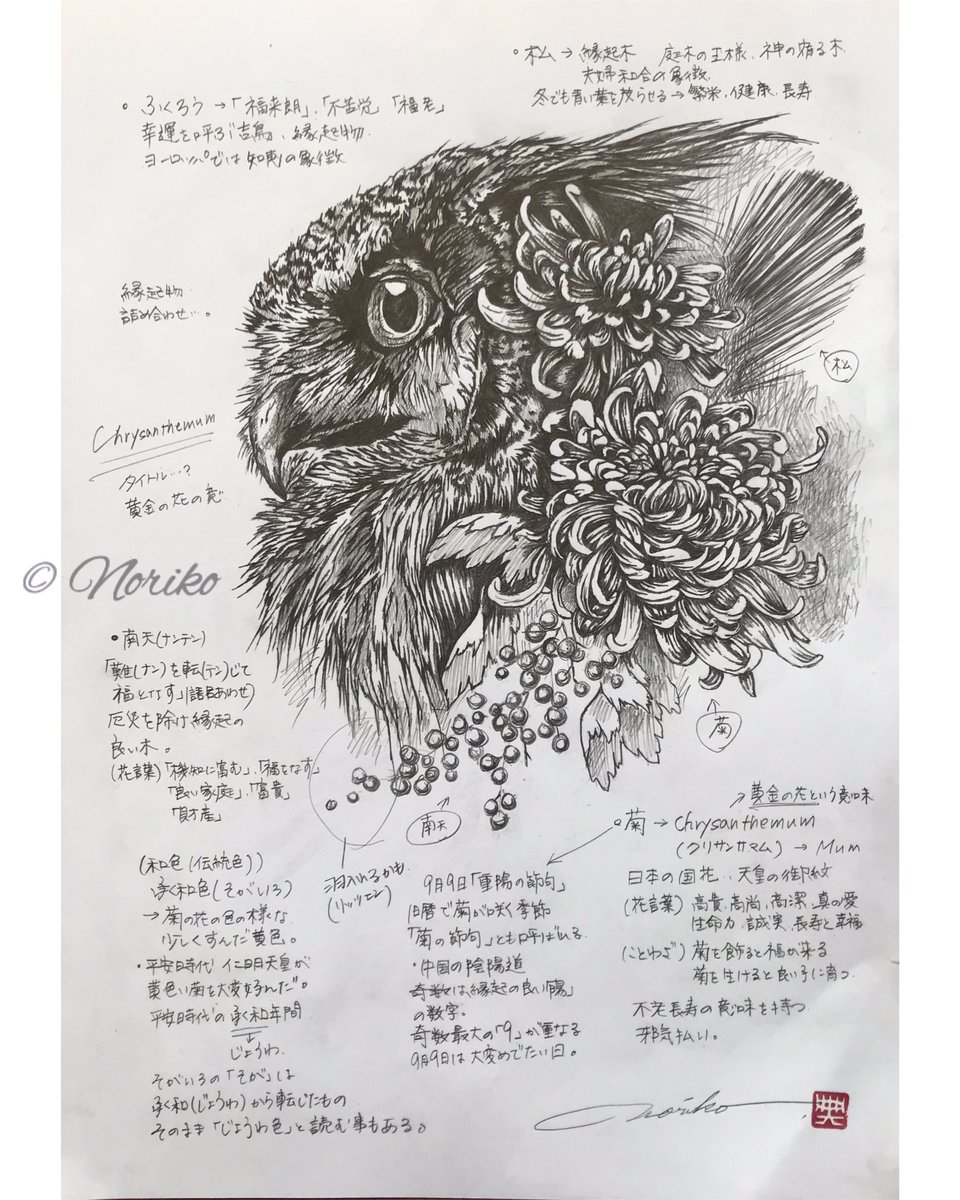 ・松→縁起木 庭木の王様、神の宿る木
夫婦和合の象徴
冬でも青い葉を茂らせる→繁栄、健康、長寿
・ふくろう→「福来朗」、「不苦労」「福老」
幸運を呼ぶ吉鳥、縁起物
ヨーロッパでは知恵の象徴
縁起物
詰め合わせ…。
松
Chrysanthemum
タイトル…?
黄金の花の意
© Noriko
・南天(ナンテン)
「難(ナン)を転(テン)じて
福となす」(語呂あわせ)
厄災を除け縁起の
良い木。
(花言葉)「機知に富む」、「福をなす」
「良い家庭」、「富貴」
「財産」
菊
南天
(和色(伝統色))
承和色(そがいろ)
→菊の花の色の様な
少しくすんだ黄色。
・平安時代 仁明天皇が
黄色い菊を大変好んだ。
平安時代の承和年間
じょうわ
そがいろの「そが」は
承和(じょうわ)から転じたもの
そのまま「じょうわ色」と読む事もある。
羽入れるかも
9月9日「重陽の節句」
旧暦で菊が咲く季節
「菊の節句」とも呼ばれる
・中国の陰陽道
奇数は縁起の良い「陽」
の数字。
奇数最大の「9」が重なる
9月9日は大変めでたい日。
黄金の花という意味
・菊→Chrysanthemum
(クリサンサマム)→Mum
日本の国花、天皇の御紋
(花言葉)高貴、高尚、高潔、真の愛
生命力、誠実、長寿と幸福
(ことわざ)菊を飾ると福が来る
菊を生けると良い子に育つ
不老長寿の意味を持つ
邪気払い。
Noriko
典